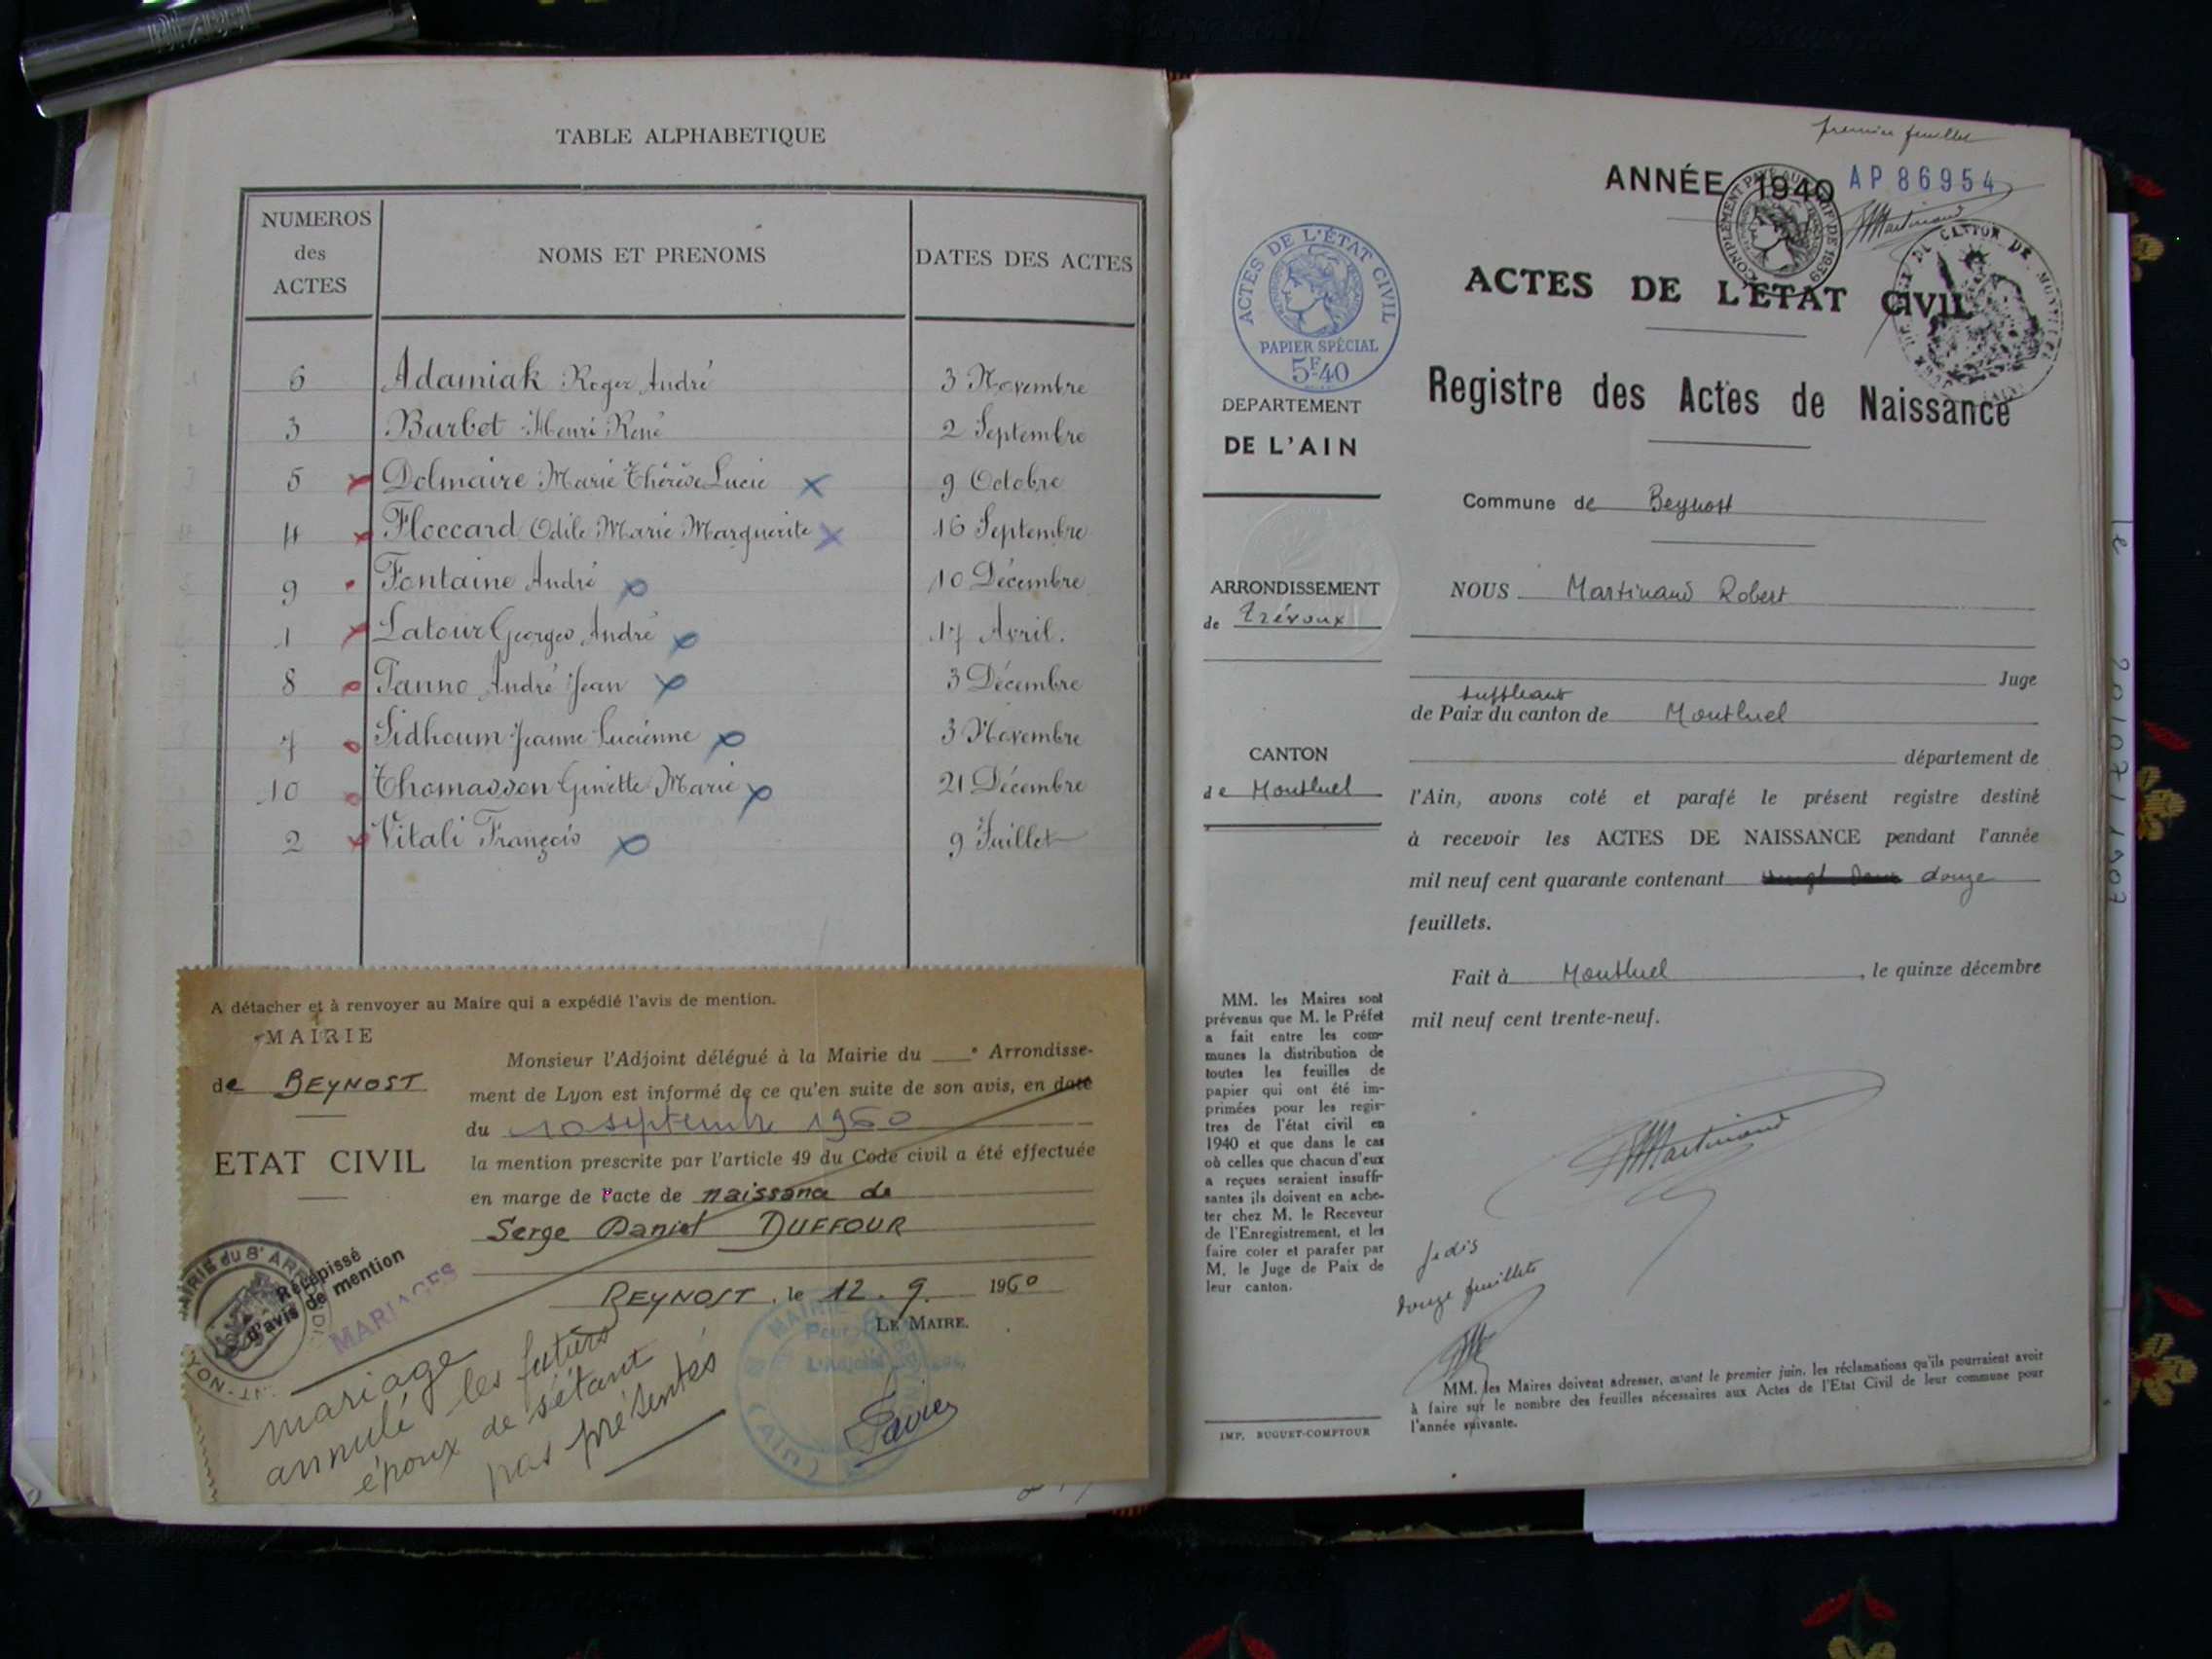 TABLE ALPHABETIQUE
NUMEROS des ACTES NOMS ET PRENOMS DATES DES ACTES
6 Adamiak Roger André 3 Novembre
3 Barbet Henri René 2 Septembre
5 Dolmaire Marie Thérèse Lucie 9 Octobre
4 Floccard Odile Marie Marguerite 16 Septembre
9 Fontaine André 10 Décembre
1 Latour Georges André 17 Avril.
8 Panno André Jean 3 Décembre
7 Sidhoum Jeanne Lucienne 3 Novembre
10 Thomasson Ginette Marie 21 Décembre
2 Vitali François 9 Juillet
A détacher et à renvoyer au Maire qui a expédié l'avis de mention.
MAIRIE
de BEYNOST
ETAT CIVIL
Monsieur l'Adjoint délégué à la Mairie du e Arrondisse-
ment de Lyon est informé de ce qu'en suite de son avis, en date
du 10 septembre 1960
la mention prescrite par l'article 49 du Code civil a été effectuée
en marge de l'acte de naissance de
Serge Daniel DUFFOUR
BEYNOST, le 12.9. 1960
LE MAIRE.
Récépissé
d'avis de mention
MARIAGES
mariage
annulé les futurs
époux de s'étant
pas présentés
premier feuillet
ANNÉE 1940 AP 86954
COMPLÉMENT PAYÉ AU TARIF DE 1939
ACTES DE L'ÉTAT CIVIL
PAPIER SPÉCIAL
5F40
ACTES DE L'ETAT CIVIL
Registre des Actes de Naissance
DEPARTEMENT
DE L'AIN
ARRONDISSEMENT
de Trévoux
CANTON
de Montluel
Commune de Beynost
NOUS Martinand Robert
Juge
suppléant
de Paix du canton de Montluel
département de
l'Ain, avons coté et parafé le présent registre destiné
à recevoir les ACTES DE NAISSANCE pendant l'année
mil neuf cent quarante contenant douze
feuillets.
Fait à Montluel, le quinze décembre
mil neuf cent trente-neuf.
Martinand
MM. les Maires sont
prévenus que M. le Préfet
a fait entre les com-
munes la distribution de
toutes les feuilles de
papier qui ont été im-
primées pour les regis-
tres de l'état civil en
1940 et que dans le cas
où celles que chacun d'eux
a reçues seraient insuffi-
santes ils doivent en ache-
ter chez M. le Receveur
de l'Enregistrement, et les
faire coter et parafer par
M. le Juge de Paix de
leur canton.
Je dis
douze feuillets
MM. les Maires doivent adresser, avant le premier juin, les réclamations qu'ils pourraient avoir
à faire sur le nombre des feuilles nécessaires aux Actes de l'Etat Civil de leur commune pour
l'année suivante.
IMP. BUGUET-COMPTOUR